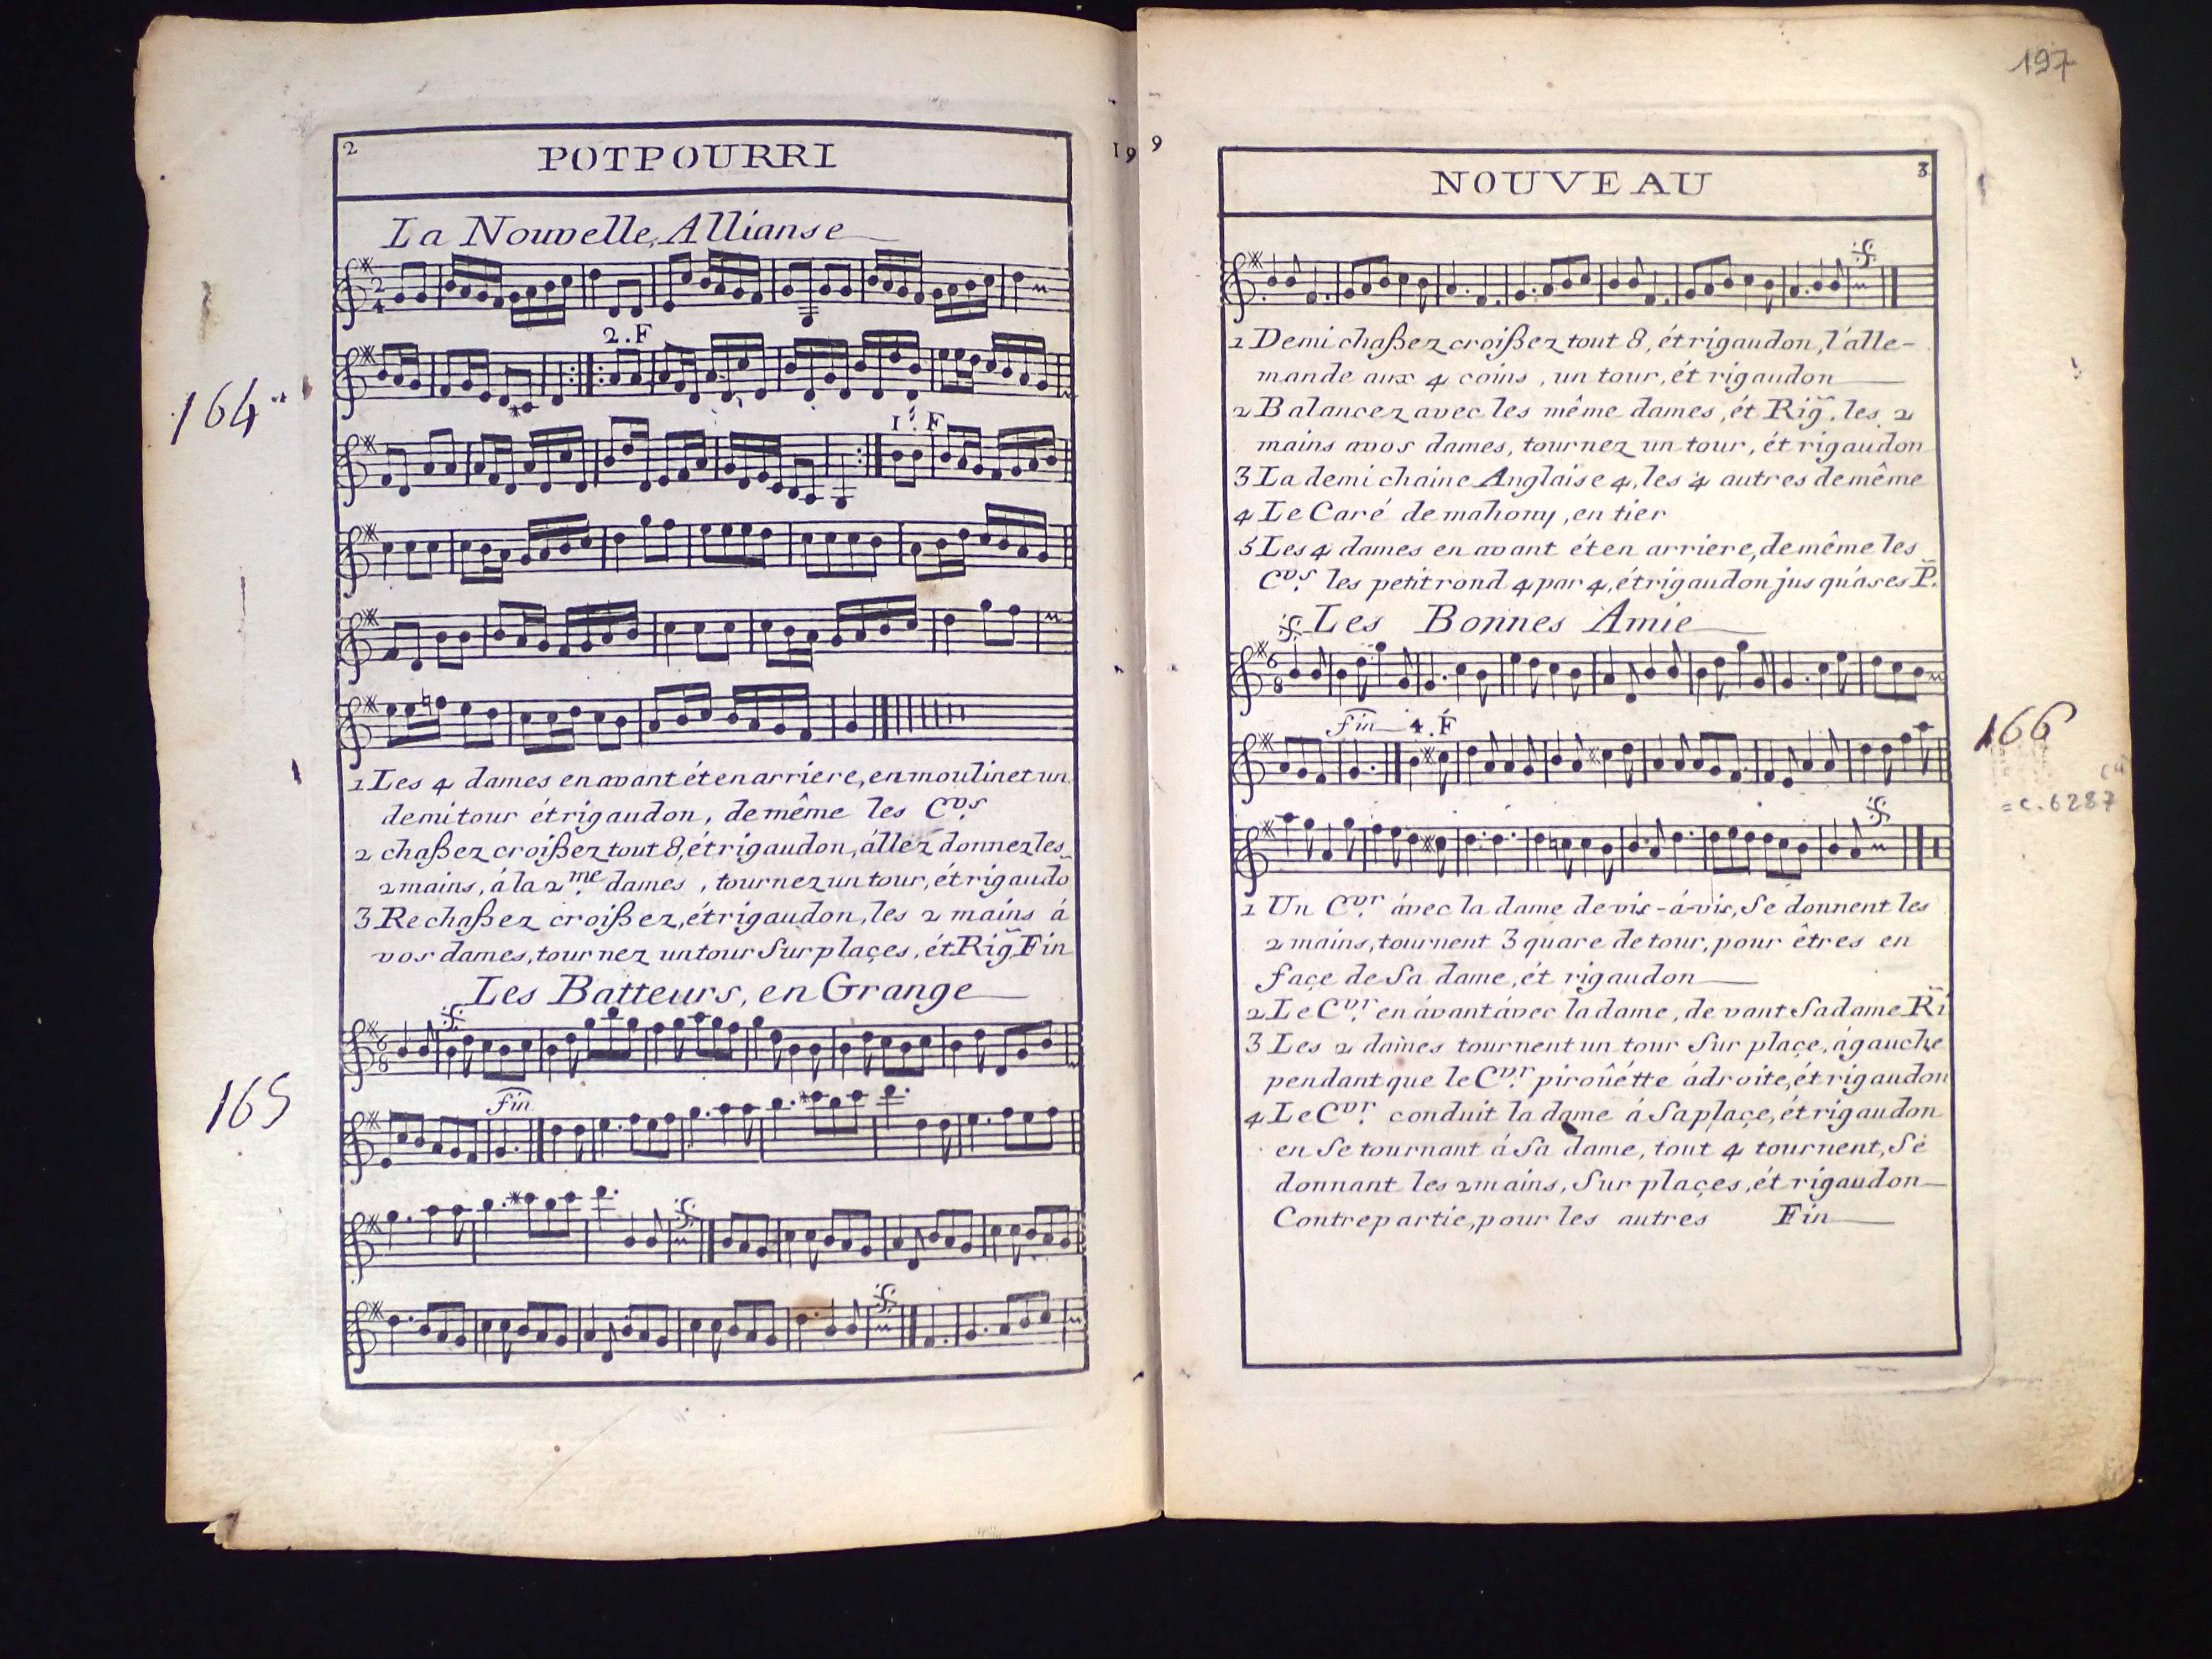 2
POTPOURRI
La Nouvelle, Allianse
2.F
164
1.re F
1 Les 4 dames en avant ét en arriere, en moulinet un
demi tour ét rigaudon, de même les C.vrs
2 chaßez croißez tout 8, ét rigaudon, állez donnez les
2 mains, á la 2.me dames, tournez un tour, ét rigaudõ
3 Rechaßez croißez, ét rigaudon, les 2 mains á
vos dames, tournez un tour Sur plaçes, ét Rig. Fin
Les Batteurs, en Grange
165
fin
199
197
NOUVEAU
3
1 Demi chaßez croißez tout 8, ét rigaudon, l'álle-
mande aux 4 coins, un tour, ét rigaudon
2 Balancez avec les même dames, ét Rig. les 2
mains avos dames, tournez un tour, ét rigaudon
3 La demi chaine Anglaise 4, les 4 autres de même
4 Le Caré de mahony, en tier
5 Les 4 dames en avant ét en arriere, de même les
C.vrs les petit rond 4 par 4, ét rigaudon jusqu'áses P.
Les Bonnes Amie
fin 4.F
166
=c.6287
1 Un C.vr ávec la dame de vis-á-vis, Se donnent les
2 mains, tournent 3 quare de tour, pour êtres en
façe de Sa dame, ét rigaudon
2 Le C.vr en ávant ávec la dame, de vant Sa dame Ri
3 Les 2 dames tournent un tour Sur plaçe, á gauche
pendant que le C.vr piroûétte ádroite, ét rigaudon
4 Le C.vr conduit la dame á Sa plaçe, ét rigaudon
en Se tournant á Sa dame, tout 4 tournent, Se
donnant les 2 mains, Sur plaçes, ét rigaudon
Contrepartie, pour les autres Fin